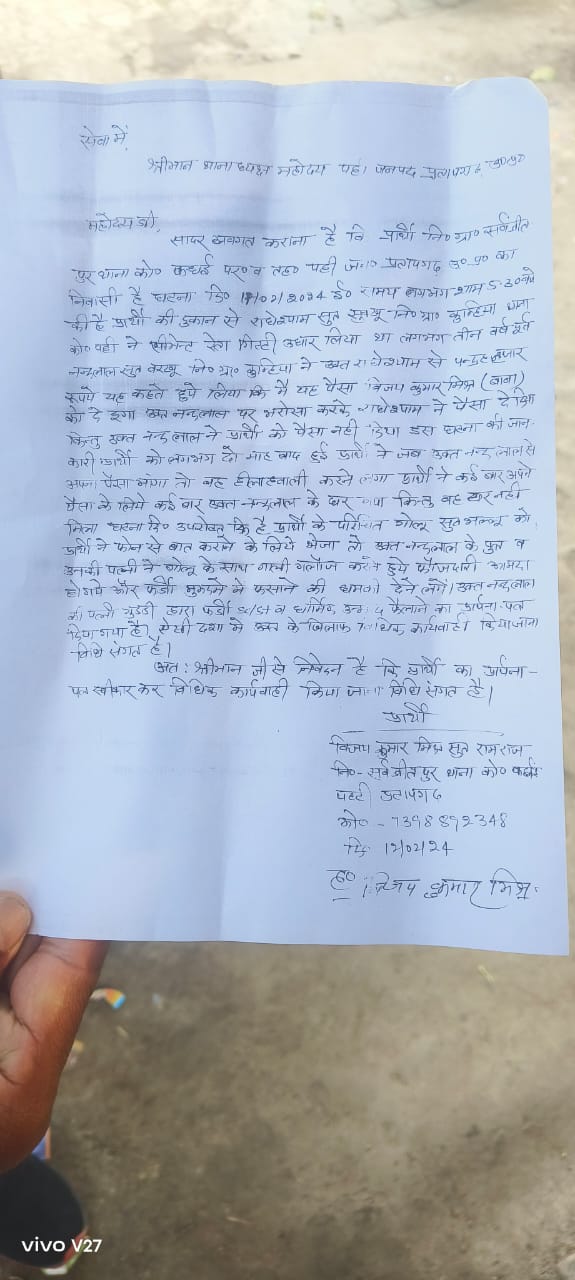 सेवा में,
श्रीमान थानाध्यक्ष महोदय पट्टी जनपद प्रतापगढ़ उ०प्र०
महोदय जी,
सादर अवगत कराना है कि प्रार्थी नि० ग्रा० सर्वजीत
पुर थाना को० कन्धई पर० व तह० पट्टी प्रतापगढ़ उ० प्र० का
निवासी है घटना दि० 12/02/2024 ई० समय लगभग शाम 5:30 बजे
की है प्रार्थी की दुकान से राधेश्याम सुत नि० ग्रा०
को० पट्टी ने सीमेन्ट रेत गिट्टी उधार लिया था लगभग तीन वर्ष पूर्व
नन्दलाल सुत नि० ग्रा० ने उक्त राधेश्याम से पन्द्रह हजार
रूपये यह कहते हुये लिया कि मै यह पैसा विजय कुमार मिश्र (बाबा)
को दे दूगा उक्त नन्दलाल पर भरोसा करके राधेश्याम ने पैसा दे दिया
किन्तु उक्त नन्दलाल ने प्रार्थी को पैसा नही दिया इस घटना की जान-
कारी प्रार्थी को लगभग दो माह बाद हुई प्रार्थी ने जब उक्त नन्दलाल से
अपना पैसा मांगा तो वह हीलाहवाली करने लगा प्रार्थी ने कई बार अपने
पैसा के लिये कई बार उक्त नन्दलाल के घर गया किन्तु वह घर नही
मिला घटना दि० उपरोक्त कि है प्रार्थी के परिचित गोलू सुत को
प्रार्थी ने फोन से बात कराने के लिये भेजा तो उक्त नन्दलाल के पुत्र व
उनकी पत्नी ने गोलू के साथ गाली गलौज करते हुये फौजदारी आमदा
हो गये और फर्जी मुकदमे मे फसाने की धमकी देने लगे। उक्त नन्दलाल
की पत्नी द्वारा फर्जी व धार्मिक फैलाने का प्रार्थना-पत्र
दिया गया है। ऐसी दशा मे उक्त के खिलाफ विधिक कार्यवाही किया जाना
विधि संगत है।
अतः श्रीमान जी से निवेदन है कि प्रार्थी का प्रार्थना-
पत्र स्वीकार कर विधिक कार्यवाही किया जाना विधि संगत है।
प्रार्थी
विजय कुमार मिश्र सुत रामराज
नि०- सर्वजीतपुर थाना को० कन्धई
पट्टी प्रतापगढ़
मो० - 7398892348
दि० 12/02/24
ह० विजय कुमार मिश्र
vivo V27